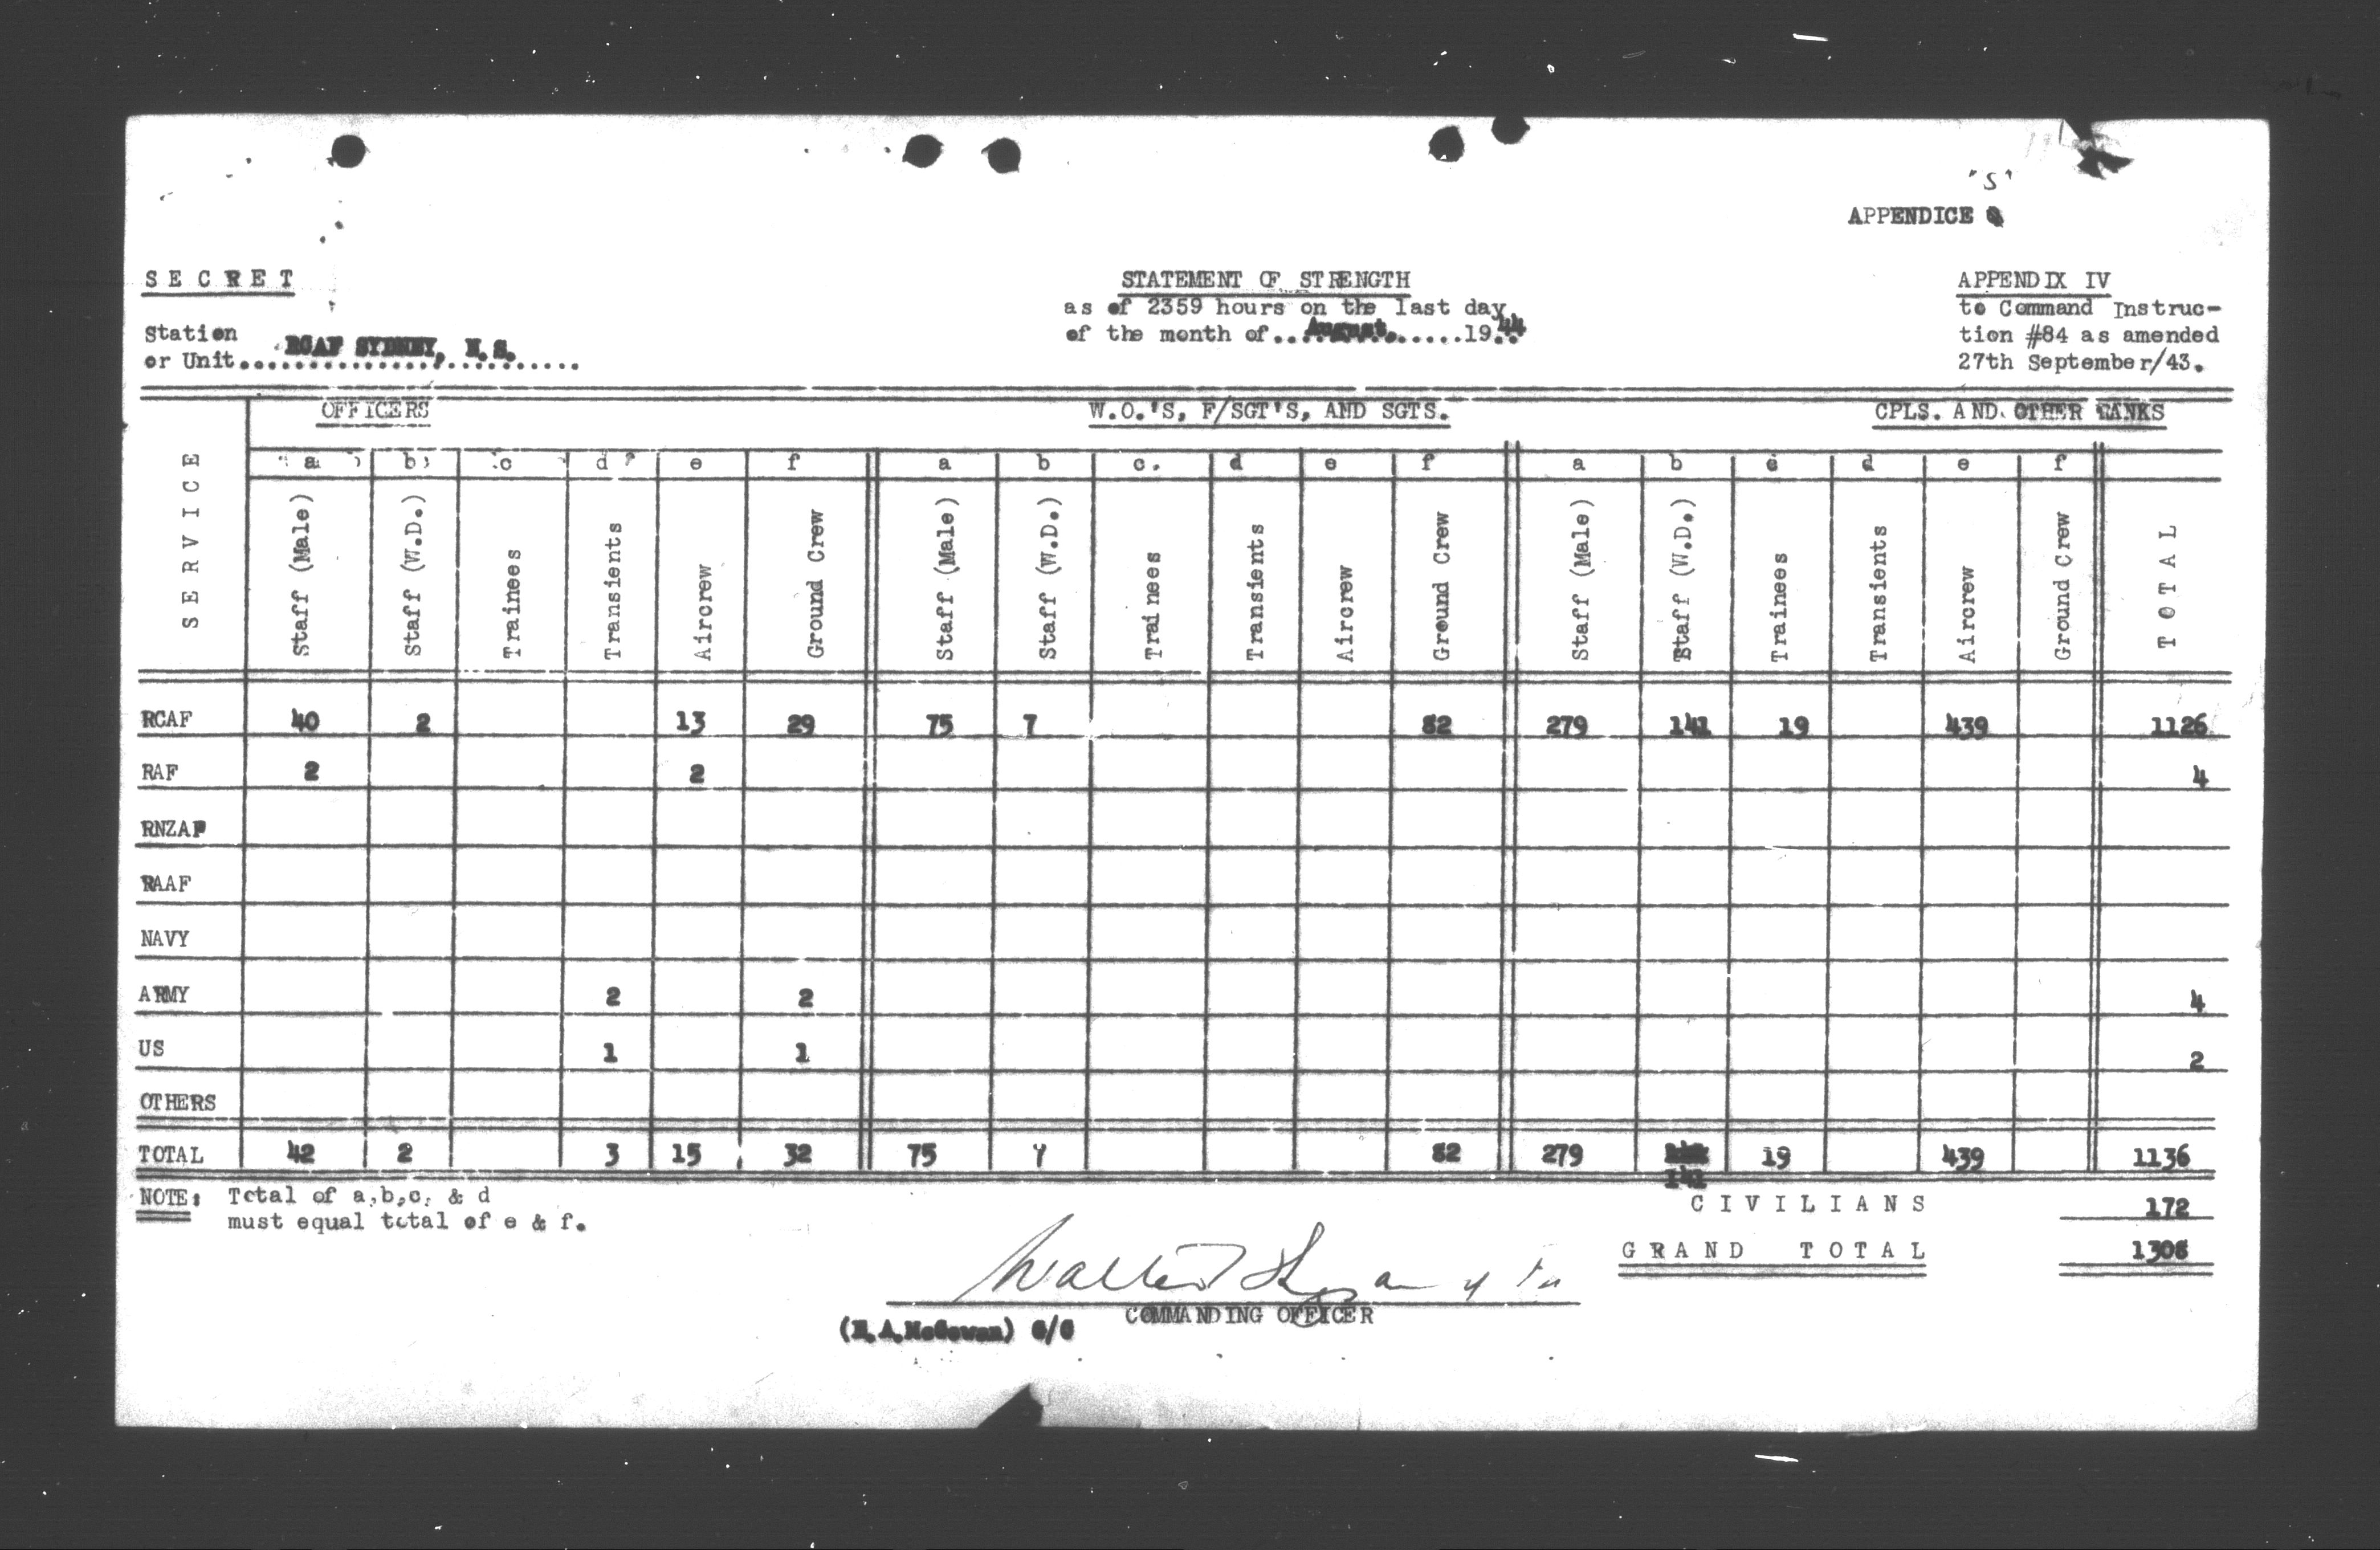 "S"
APPENDICE
SECRET
STATEMENT OF STRENGTH
as of 2359 hours on the last day
of the month of...August.......1944
APPENDIX IV
to Command Instruc-
tion #84 as amended
27th September/43.
Station
or Unit..RCAF SYDNEY, N.S...........
OFFICERS W.O.'S, F/SGT'S, AND SGTS. CPLS. AND OTHER RANKS
SERVICE
a b c d e f a b c. d e f a b c d e f
Staff (Male) Staff (W.D.) Trainees Transients Aircrew Ground Crew Staff (Male) Staff (W.D.) Trainees Transients Aircrew Ground Crew Staff (Male) Staff (W.D.) Trainees Transients Aircrew Ground Crew TOTAL
RCAF 40 2 13 29 75 7 82 279 141 19 439 1126
RAF 2 2 4
RNZAF
RAAF
NAVY
ARMY 2 2 4
US 1 1 2
OTHERS
TOTAL 42 2 3 15 32 75 7 82 279 141 19 439 1136
NOTE: Total of a,b,c, & d
must equal total of e & f.
CIVILIANS 172
GRAND TOTAL 1308
Walter
COMMANDING OFFICER
McGowan) G/C